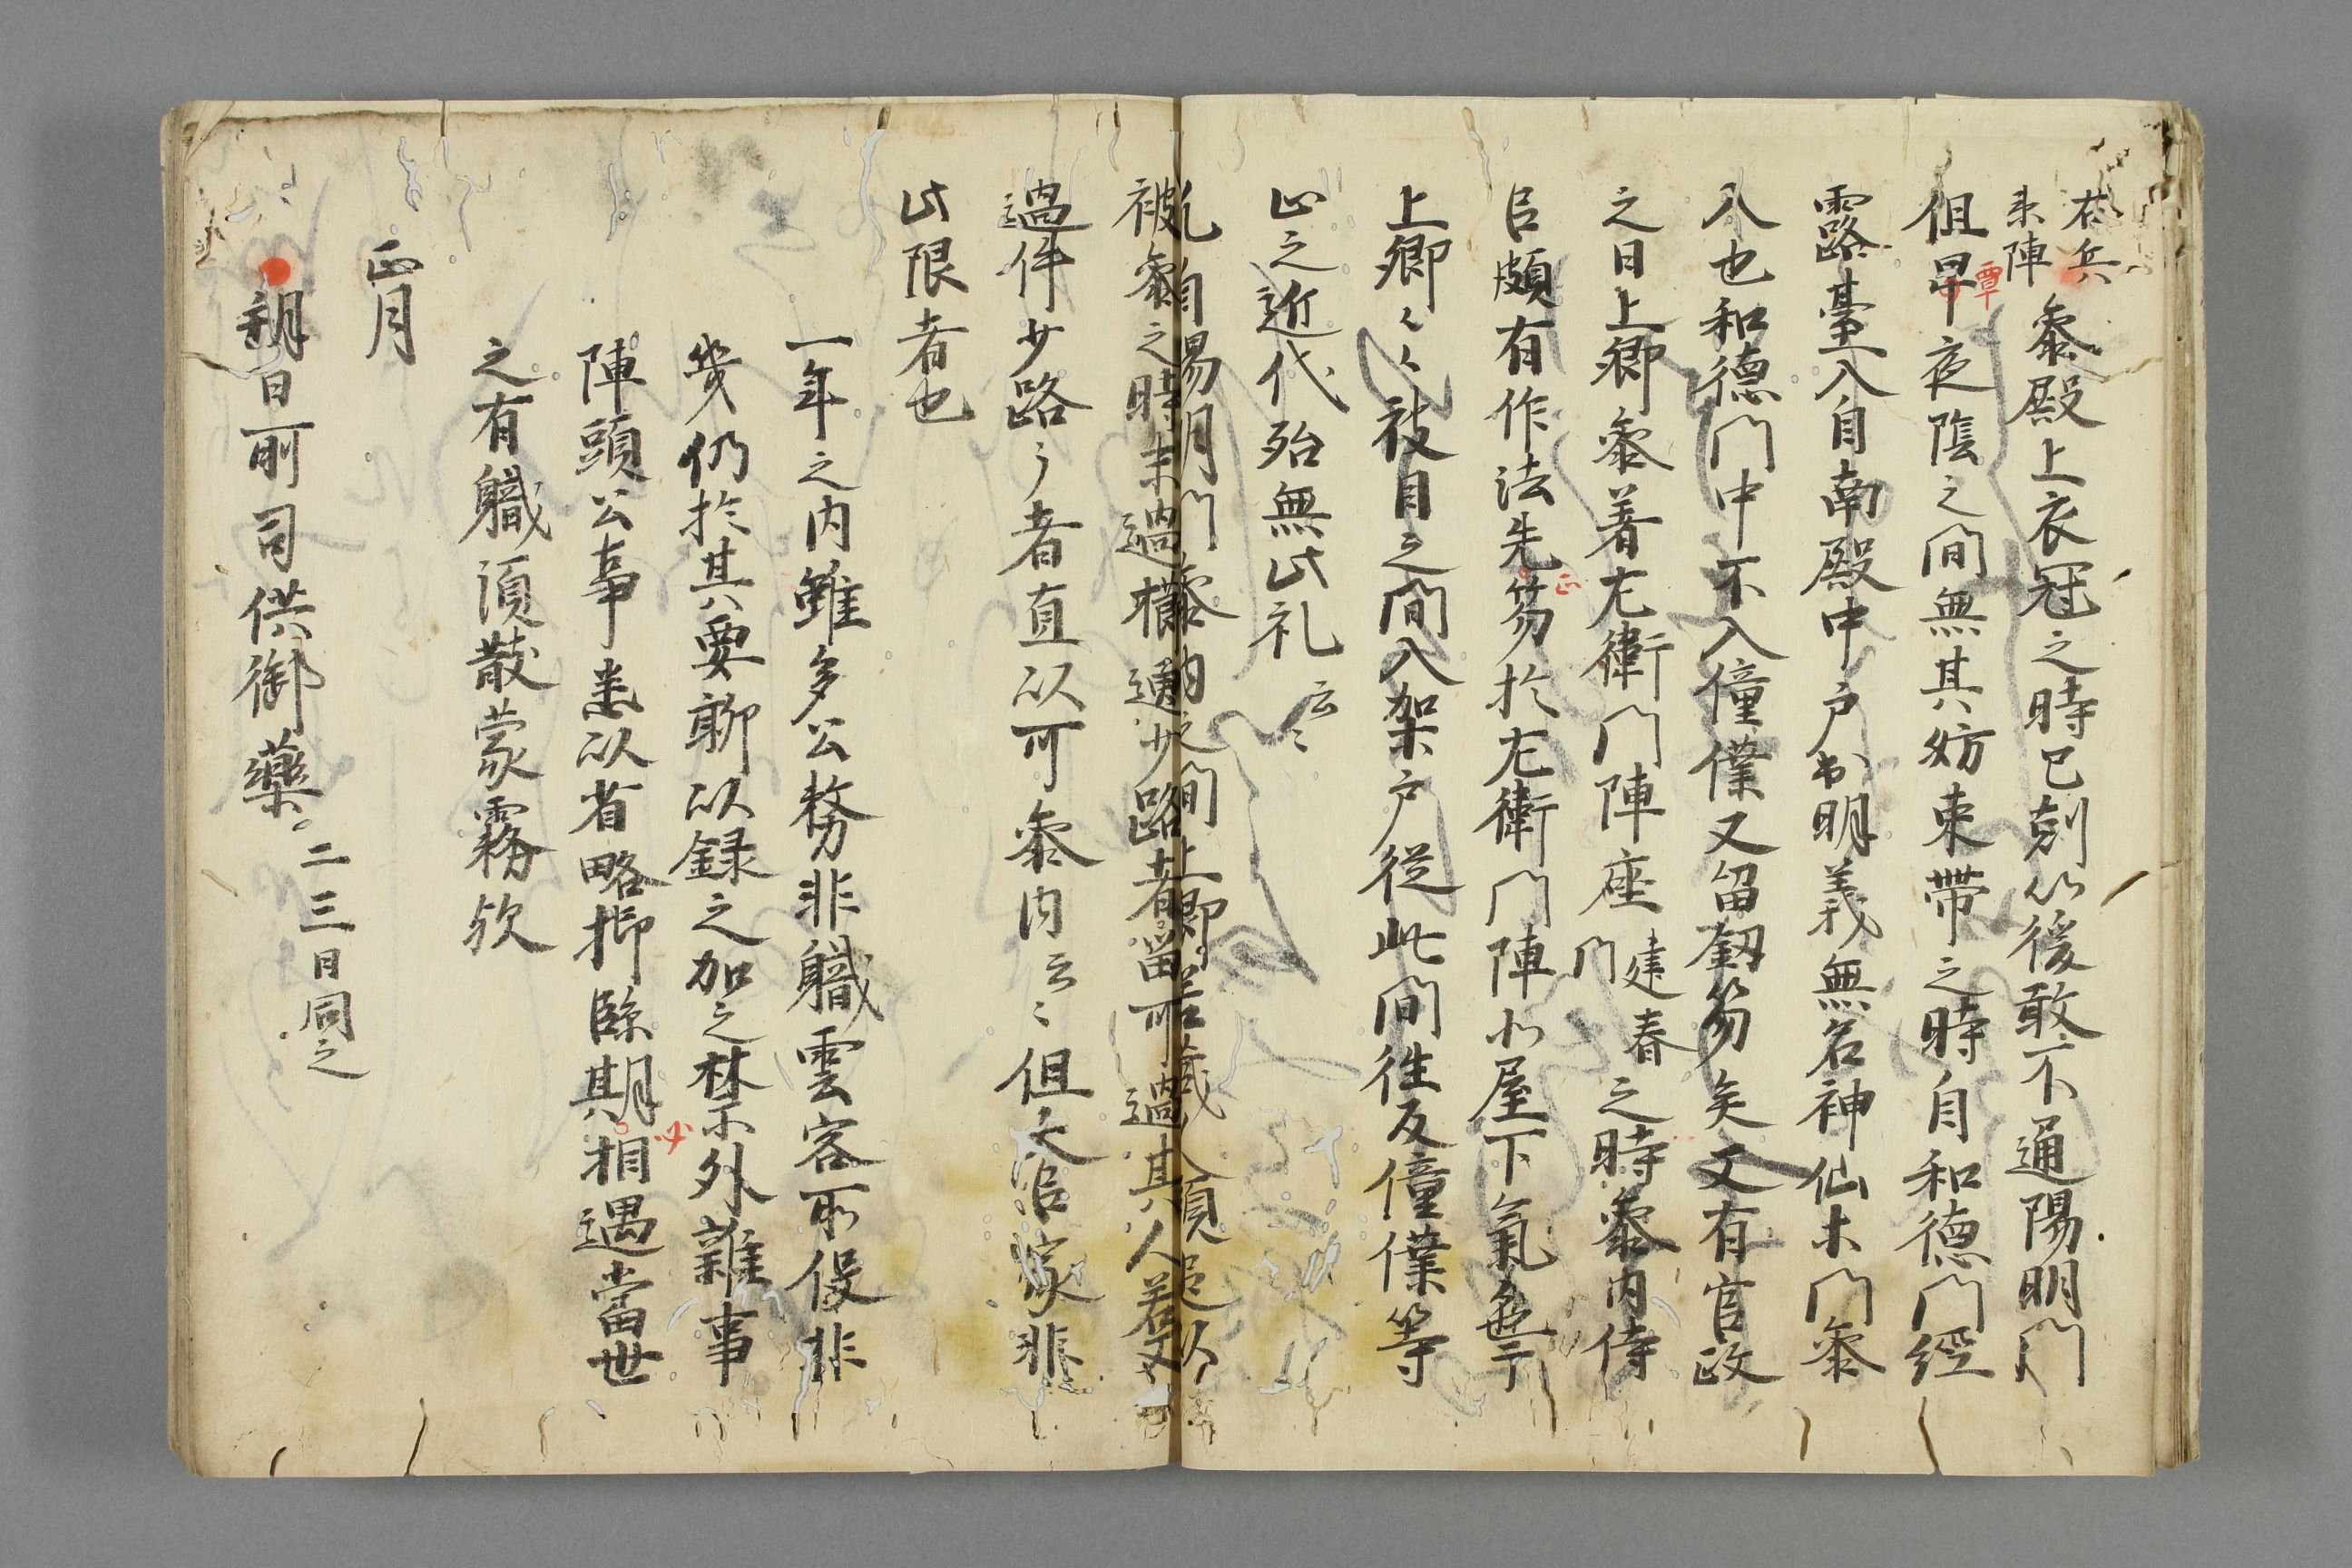 右兵
衛陣
参殿上衣冠之時已剋以後敢不通陽明門
但早夜陰之間無其妨束帯之時自和徳門経
覃
露臺入自南殿中戸出明義無名神仙木門参
入也和徳門中不入僮僕又留釼笏矣又有官政
之日上卿参着左衛門陣座
建春
門
之時参内侍
臣頗有作法先笏於左衛門陣小屋下氣色
正
上卿〻〻被目之間入架戸従此間往反僮僕等
止之近代殆無此礼云〻
凡自陽明門参内之間上卿若蔵人頭追以
被参之時未過櫳適少路者留而過其人若又
過件少路之者直以可参内云〻但大臣家非
此限者也
一年之内雖多公務非職雲客所役非
幾仍於其要聊以録之加之禁外雜事
陣頭公事悉以省略抑臨期相遇當世
必
之有職須散蒙霧欤
正月
朔日所司供御藥
二三日同之